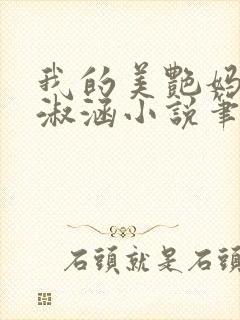 我的美艷妈
淑涵小説筆
石頭就是石頭